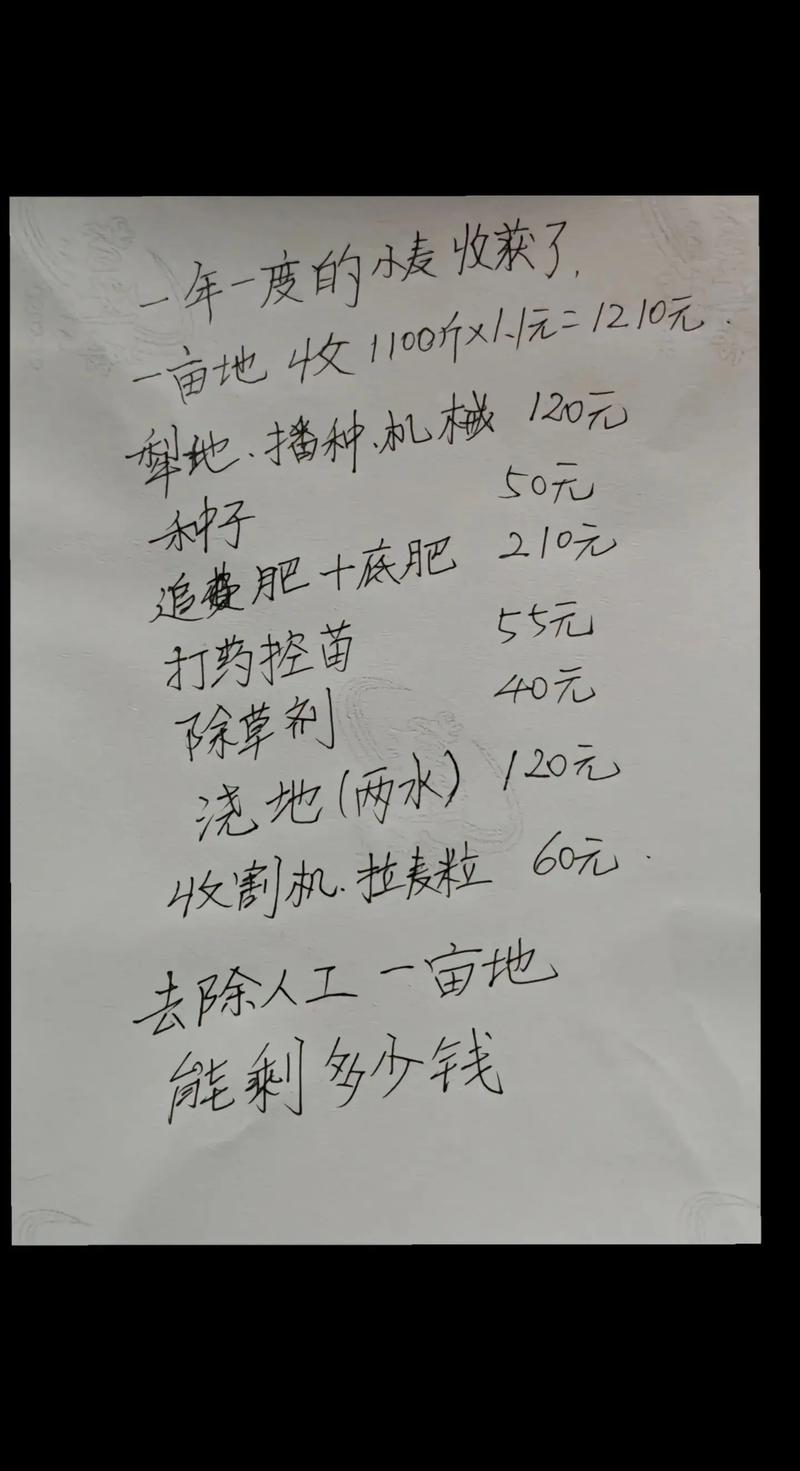 一年一度的小麦收获了,
一亩地收1100斤×1.1元=1210元.
犁地、播种、机械 120元
种子 50元
追肥+底肥 210元
打药控苗 55元
除草剂 40元
浇地(两水) 120元
收割机.拉麦粒 60元.
去除人工一亩地
能剩多少钱